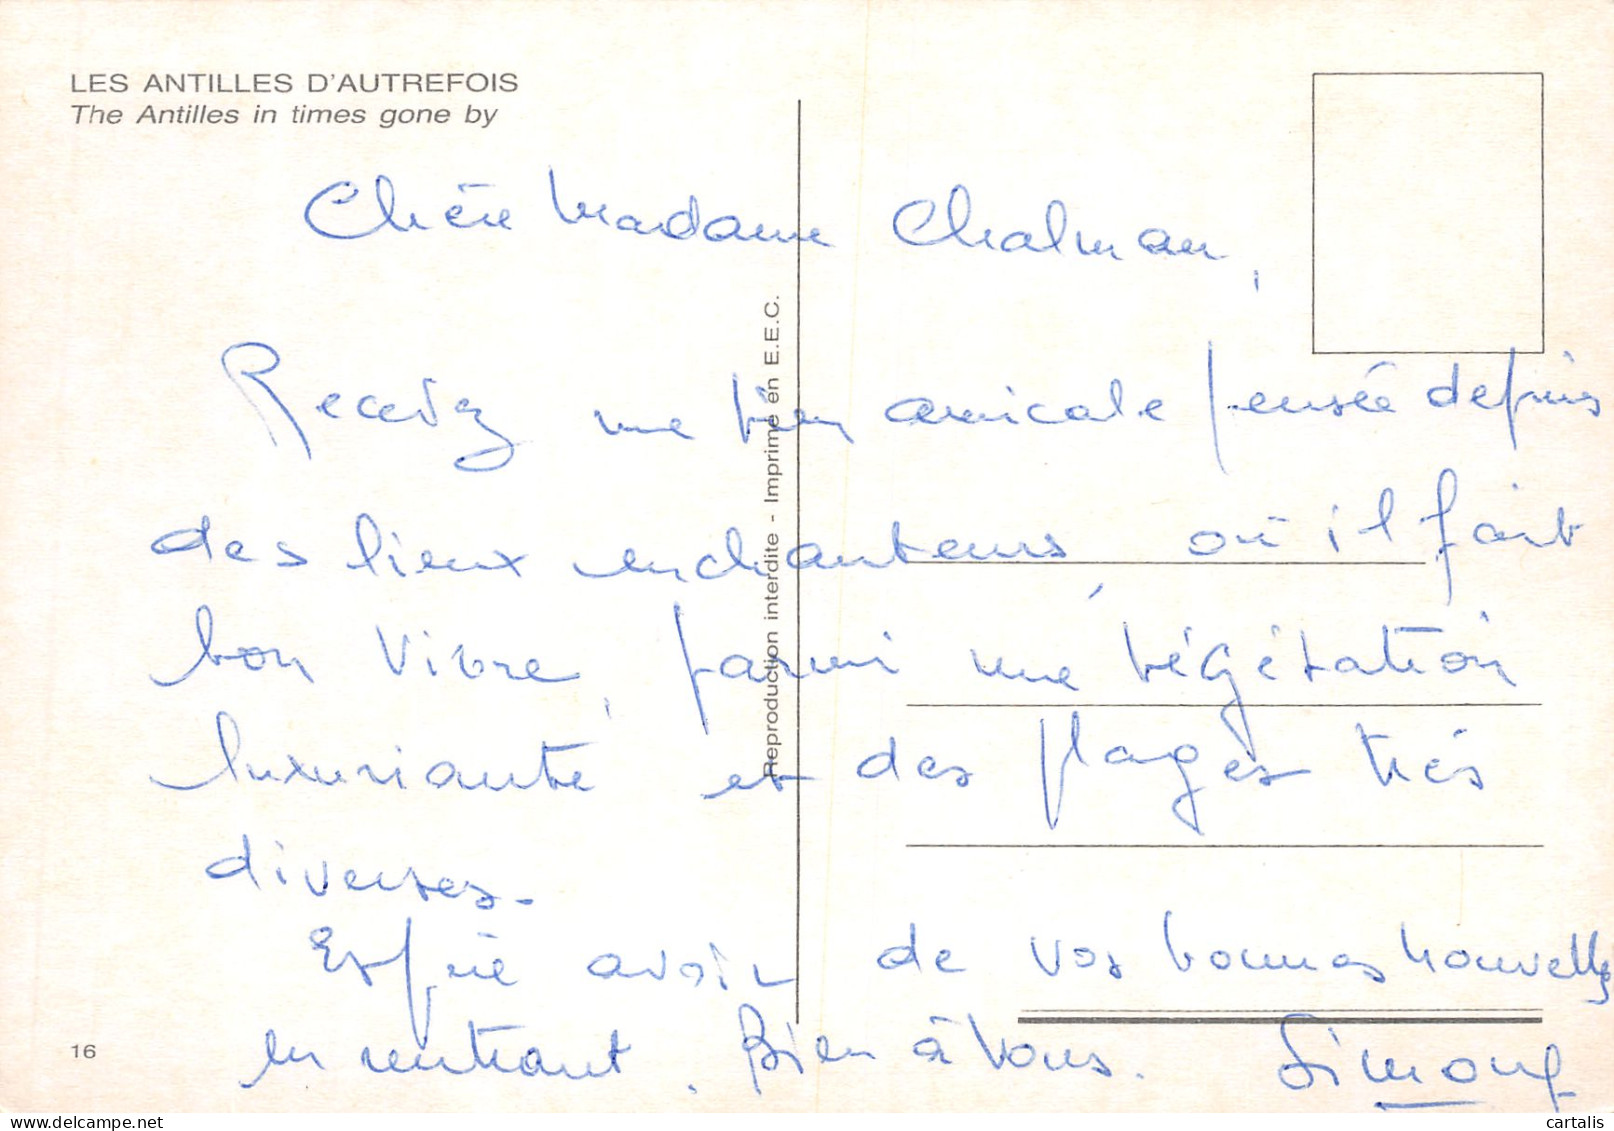 LES ANTILLES D'AUTREFOIS
The Antilles in times gone by
Chère Madame Chalman,
Recevez une bien amicale pensée depuis
des lieux enchanteurs, où il fait
bon vivre, parmi une végétation
luxuriante et des plages très
diverses.
Espère avoir de vos bonnes nouvelles
en rentrant. Bien à vous. Simone
Reproduction interdite - Imprimé en E.E.C.
16
cartalis